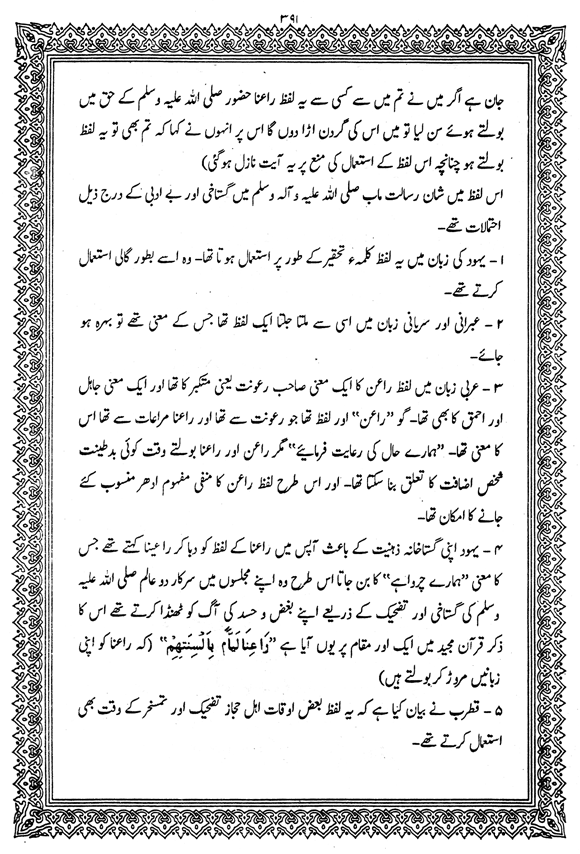 ۳۹۱
جان ہے اگر میں نے تم میں سے کسی سے یہ لفظ راعنا حضور صلی اللہ علیہ وسلم کے حق میں
بولتے ہوئے سن لیا تو میں اس کی گردن اڑا دوں گا اس پر انہوں نے کہا کہ تم بھی تو یہ لفظ
بولتے ہو چنانچہ اس لفظ کے استعمال کی منع پر یہ آیت نازل ہوگئی)
اس لفظ میں شان رسالت ماب صلی اللہ علیہ و آلہ وسلم میں گستاخی اور بے ادبی کے درج ذیل
احتمالات تھے۔
۱ - یہود کی زبان میں یہ لفظ کلمہء تحقیر کے طور پر استعمال ہوتا تھا۔ وہ اسے بطور گالی استعمال
کرتے تھے۔
۲ - عبرانی اور سریانی زبان میں اسی سے ملتا جلتا ایک لفظ تھا جس کے معنی تھے تو بہرہ ہو
جائے۔
۳ - عربی زبان میں لفظ راعن کا ایک معنی صاحب رعونت یعنی متکبر کا تھا اور ایک معنی جاہل
اور احمق کا بھی تھا۔ گو ”راعن“ اور لفظ تھا جو رعونت سے تھا اور راعنا مراعات سے تھا اس
کا معنی تھا۔ ”ہمارے حال کی رعایت فرمایئے“ مگر راعن اور راعنا بولتے وقت کوئی بدطینت
شخص اضافت کا تعلق بنا سکتا تھا۔ اور اس طرح لفظ راعن کا منفی مفہوم ادھر منسوب کئے
جانے کا امکان تھا۔
۴ - یہود اپنی گستاخانہ ذہنیت کے باعث آپس میں راعنا کے لفظ کو دبا کر راعینا کہتے تھے جس
کا معنی ”ہمارے چرواہے“ کا بن جاتا اس طرح وہ اپنے مجلسوں میں سرکار دو عالم صلی اللہ علیہ
وسلم کی گستاخی اور تضحیک کے ذریعے اپنے بغض و حسد کی آگ کو ٹھنڈا کرتے تھے اس کا
ذکر قرآن مجید میں ایک اور مقام پر یوں آیا ہے ”رَاعِنَا لَیًّام بِاَلْسِنَتِهِمْ“ (کہ راعنا کو اپنی
زبانیں مروڑ کر بولتے ہیں)
۵ - قطرب نے بیان کیا ہے کہ یہ لفظ بعض اوقات اہل حجاز تضحیک اور تمسخر کے وقت بھی
استعمال کرتے تھے۔